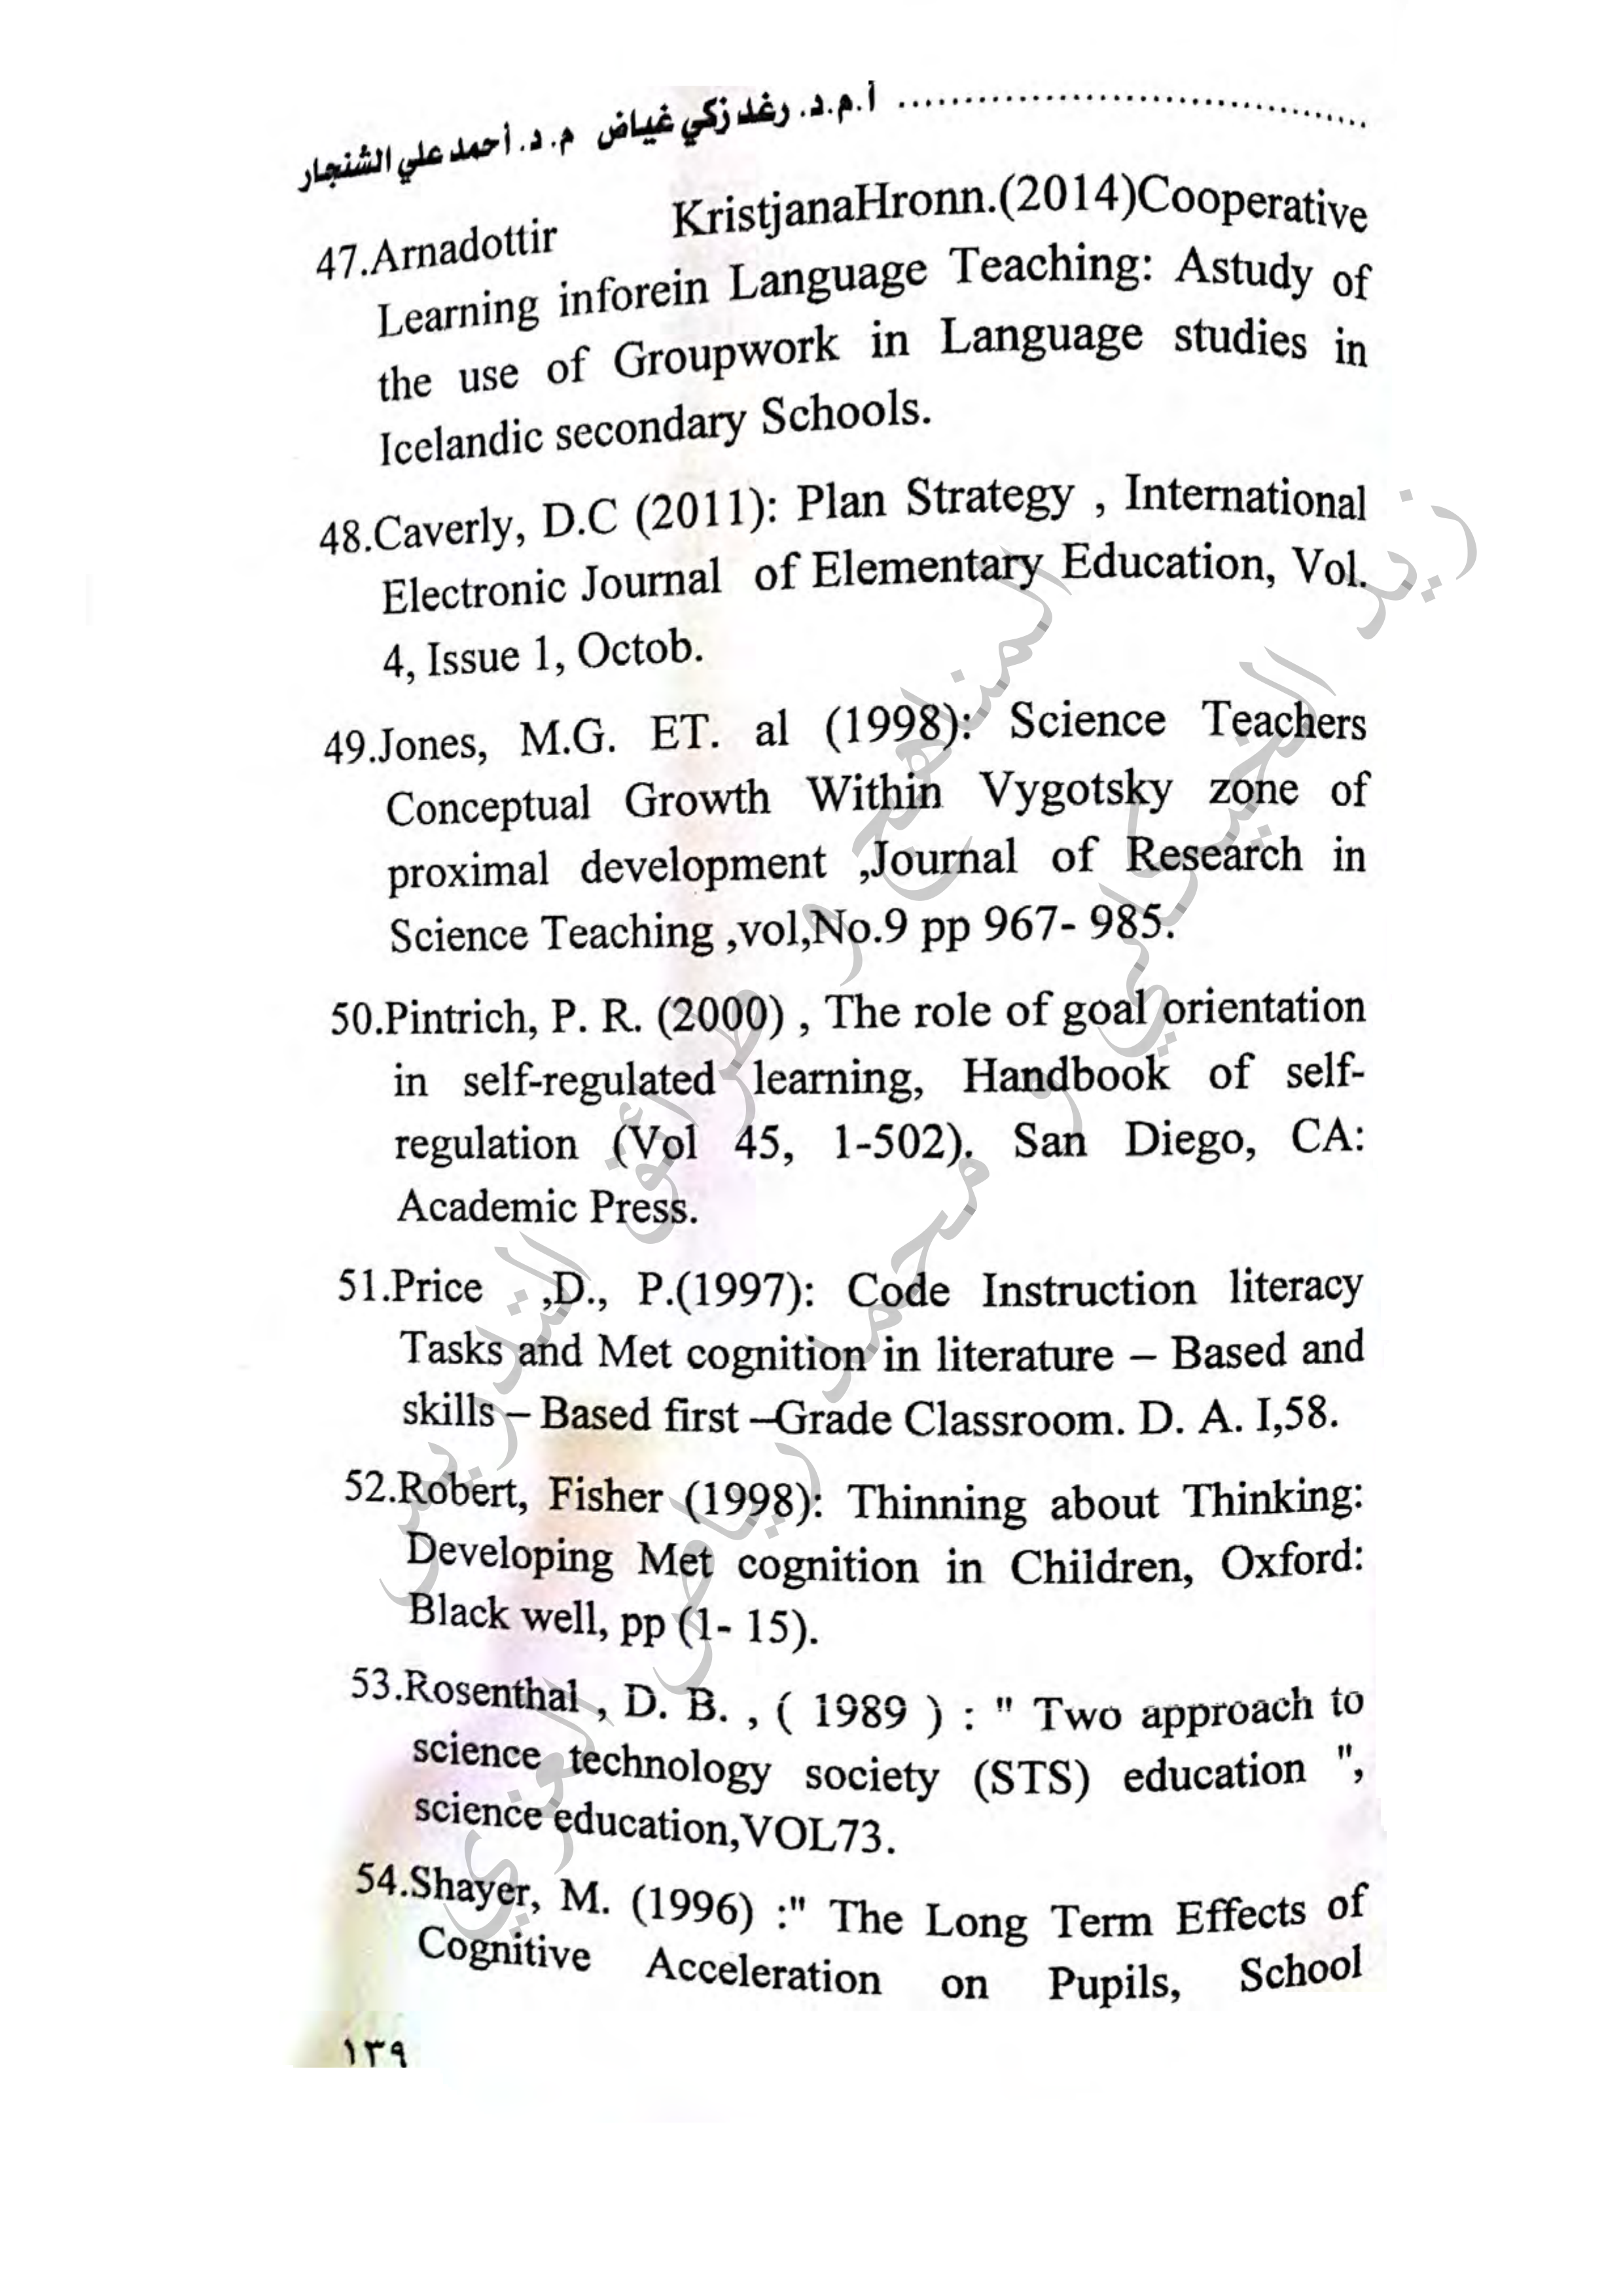 أ.م.د. رغد زكي غياض م. د. أحمد علي الشنجار
47.Arnadottir KristjanaHronn.(2014)Cooperative
Learning inforein Language Teaching: Astudy of
the use of Groupwork in Language studies in
Icelandic secondary Schools.
48.Caverly, D.C (2011): Plan Strategy , International
Electronic Journal of Elementary Education, Vol.
4, Issue 1, Octob.
49.Jones, M.G. ET. al (1998): Science Teachers
Conceptual Growth Within Vygotsky zone of
proximal development ,Journal of Research in
Science Teaching ,vol,No.9 pp 967- 985.
50.Pintrich, P. R. (2000) , The role of goal orientation
in self-regulated learning, Handbook of self-
regulation (Vol 45, 1-502). San Diego, CA:
Academic Press.
51.Price ,D., P.(1997): Code Instruction literacy
Tasks and Met cognition in literature – Based and
skills – Based first –Grade Classroom. D. A. I,58.
52.Robert, Fisher (1998): Thinning about Thinking:
Developing Met cognition in Children, Oxford:
Black well, pp (1- 15).
53.Rosenthal , D. B. , ( 1989 ) : " Two approach to
science technology society (STS) education ",
science education,VOL73.
54.Shayer, M. (1996) :" The Long Term Effects of
Cognitive Acceleration on Pupils, School
١٣٩
المناهج و طرائق التدريس
زيد الخيكاني و محمد رياض الغزي